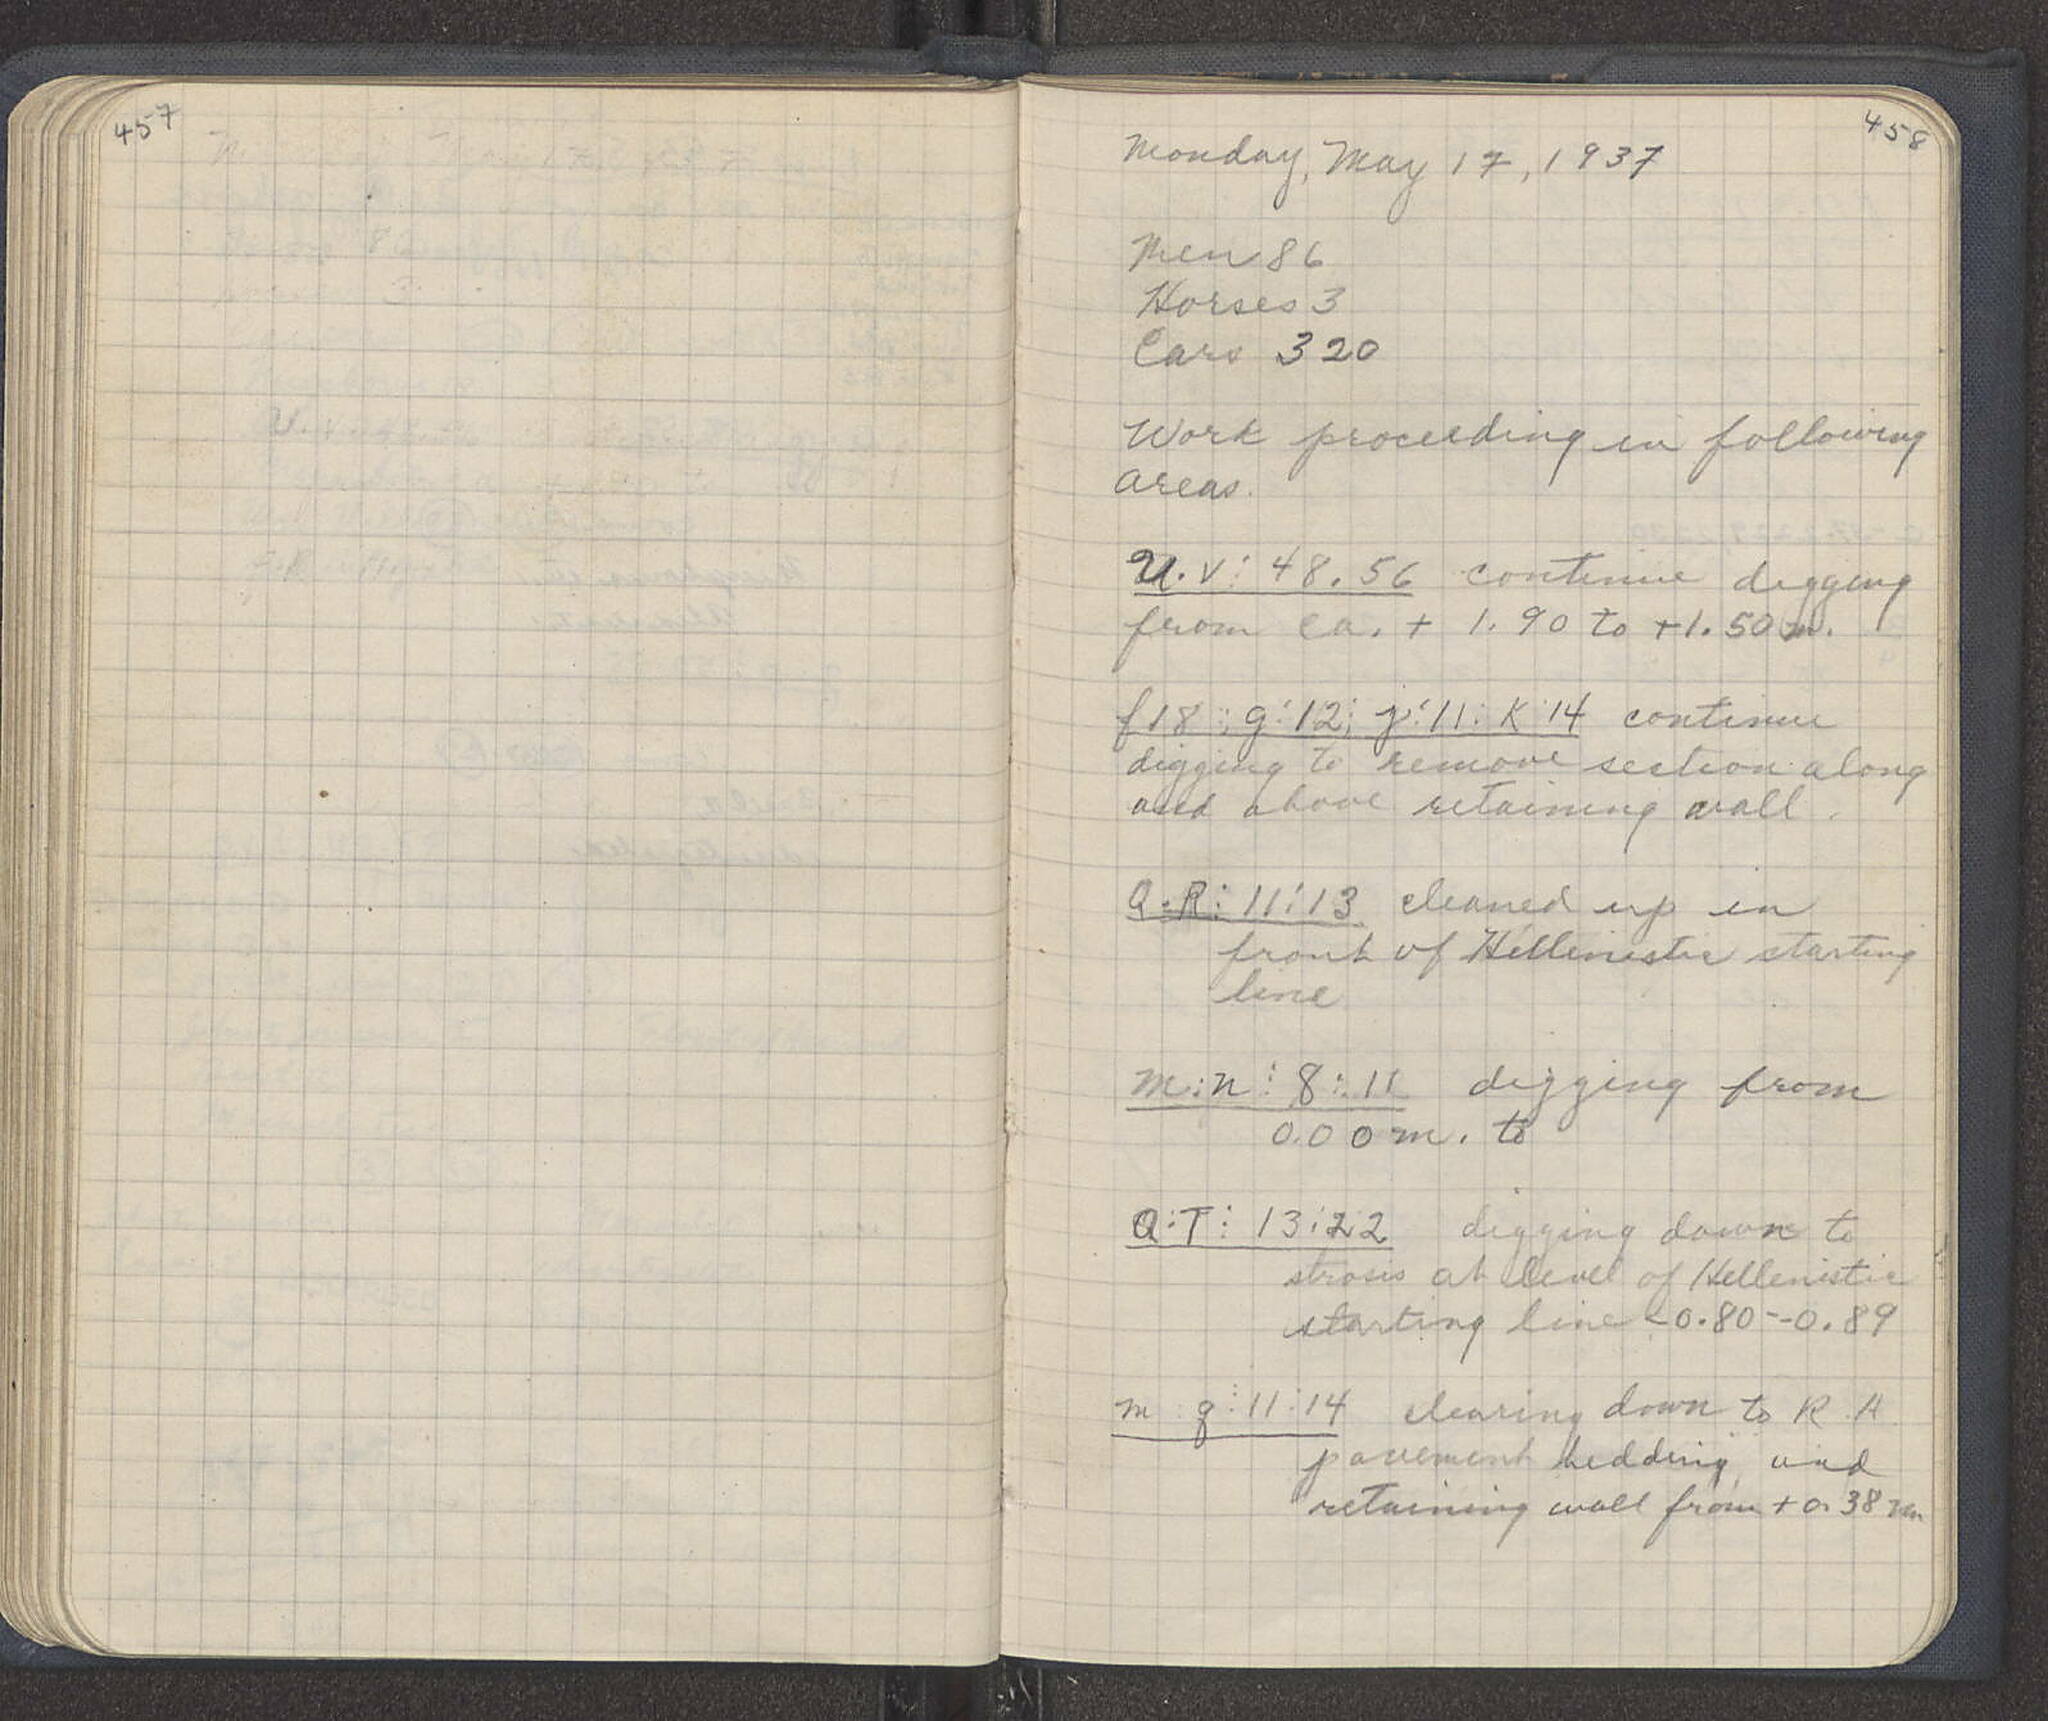 457
458
Monday, May 17, 1937
Men 86
Horses 3
Cars 320
Work proceeding in following
areas.
U.V: 48.56 continue digging
from ca. + 1.90 to +1.50 m.
f 18:; g:12; j:11: K 14 continue
digging to remove section along
and above retaining wall.
Q-R: 11:13 cleaned up in
front of Hellenistic starting
line
m:n: 8:11 digging from
0.00 m. to
Q:T: 13:22 digging down to
strosis at level of Hellenistic
starting line -0.80--0.89
m : g:11:14 clearing down to R. H
pavement bedding and
retaining wall from +0.38 m